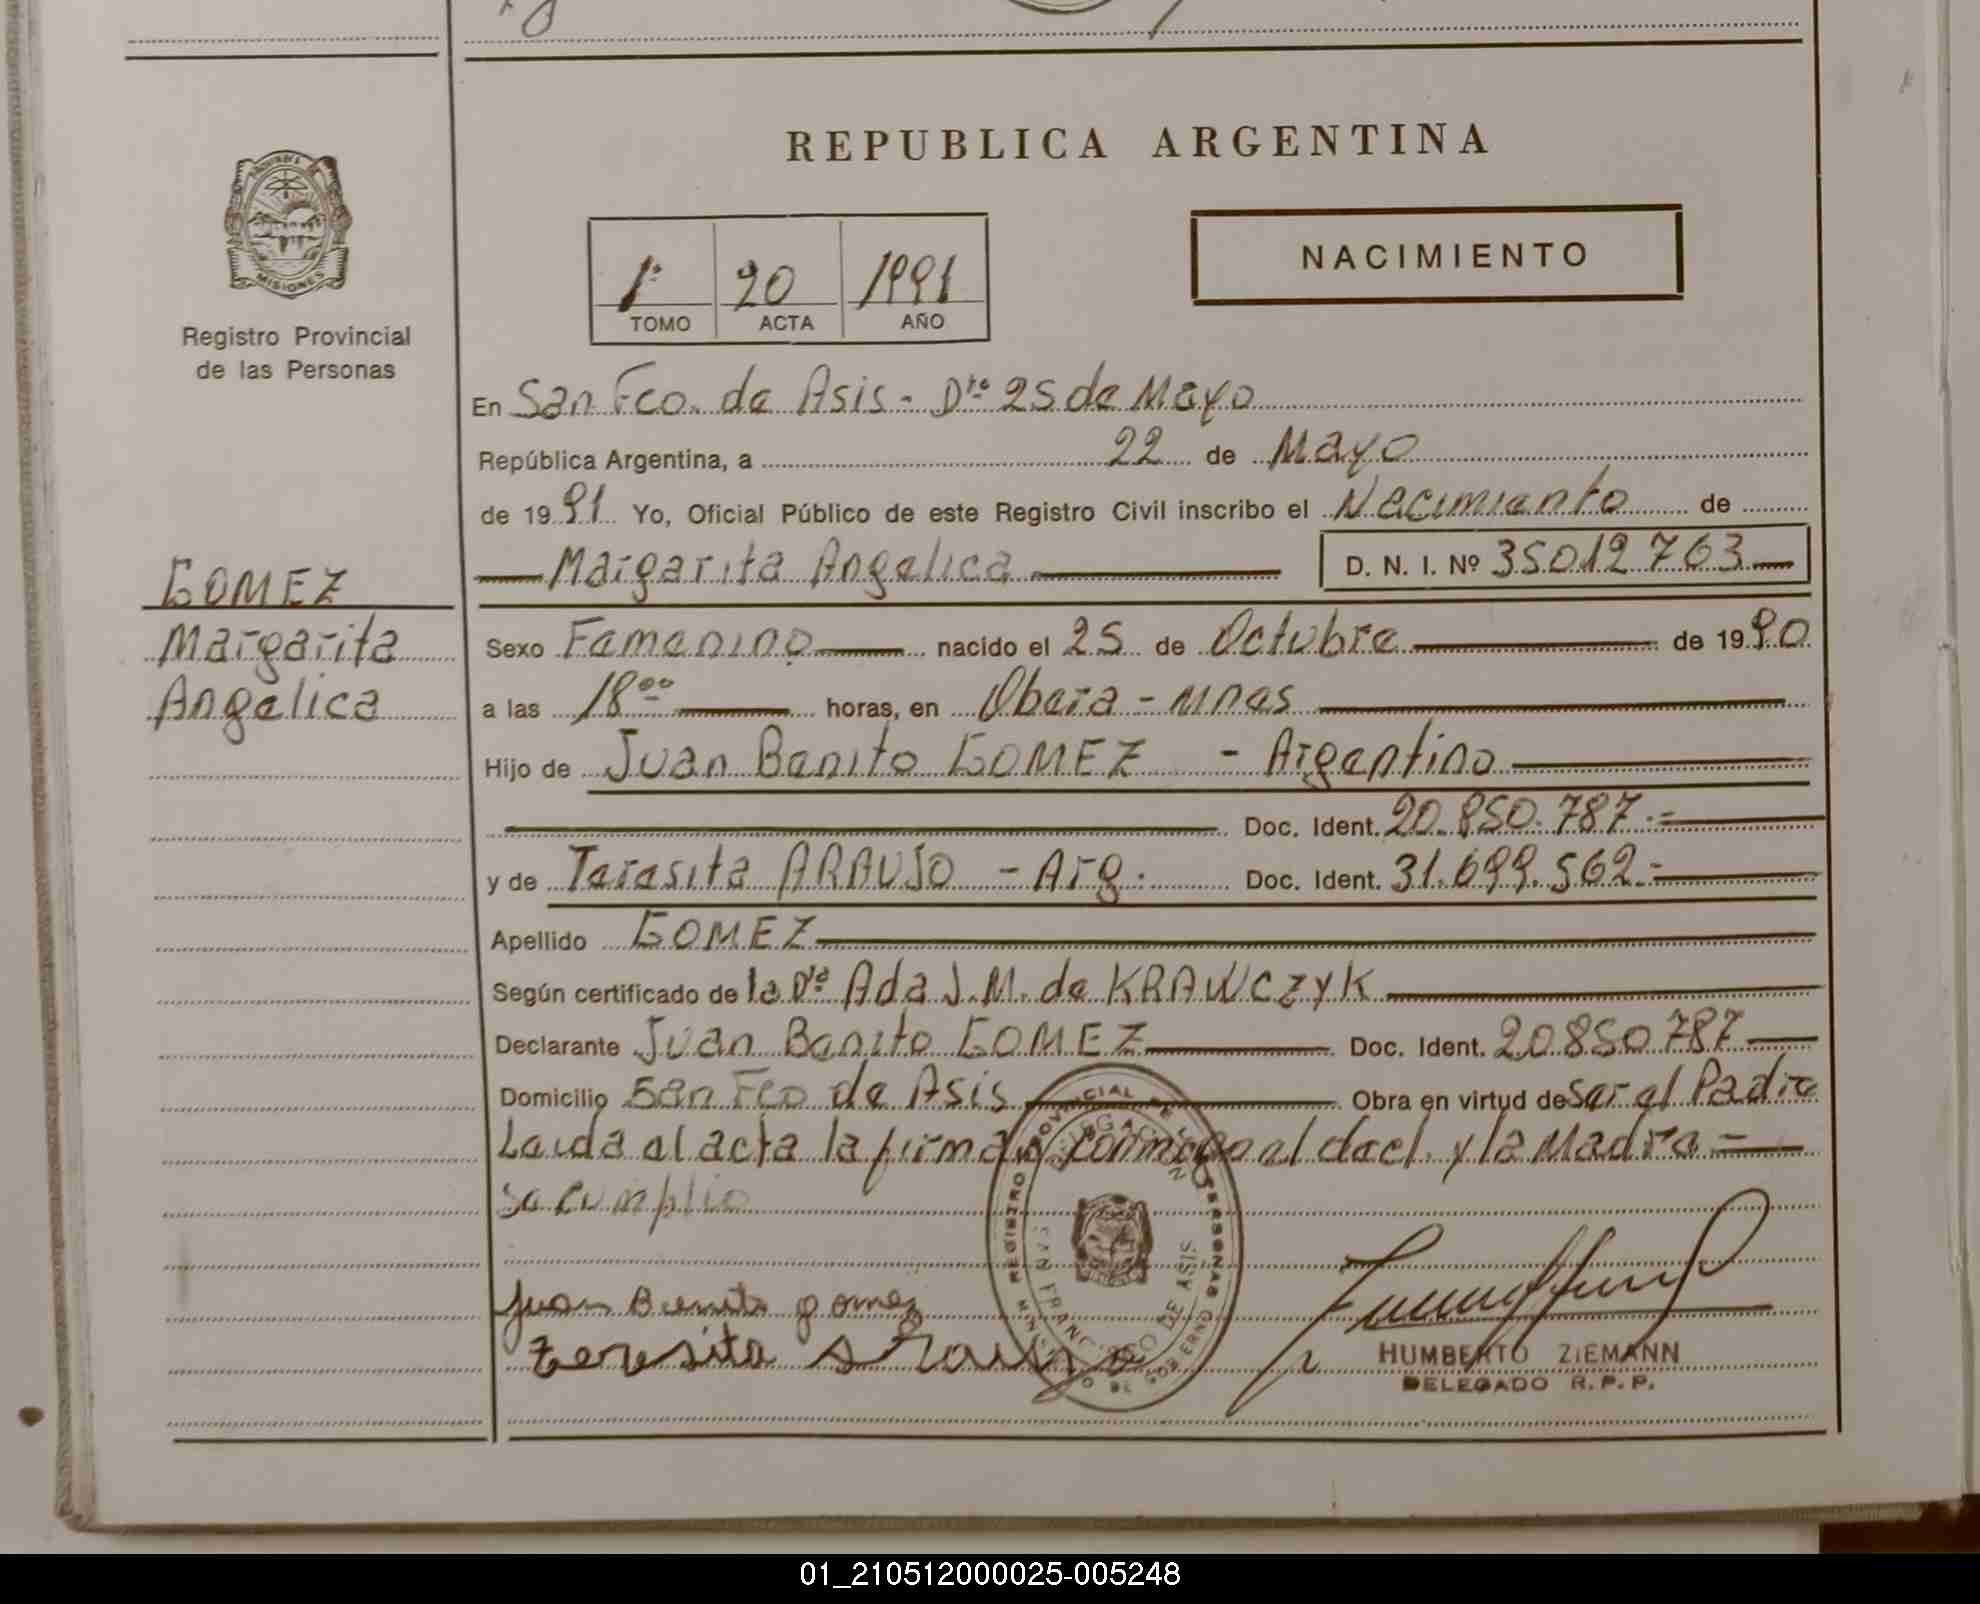 REPUBLICA ARGENTINA
PROVINCIA MISIONES
Registro Provincial
de las Personas
1º 20 1991
TOMO ACTA AÑO
NACIMIENTO
En San Fco. de Asis - Dto 25 de Mayo
República Argentina, a 22 de Mayo
de 1991 Yo, Oficial Público de este Registro Civil inscribo el Nacimiento de
Margarita Angelica D. N. I. Nº 35012763
GOMEZ
Margarita
Angelica
Sexo Femenino nacido el 25 de Octubre de 1990
a las 18 00 horas, en Obera - Mnes
Hijo de Juan Benito GOMEZ - Argentino
Doc. Ident. 20.850.787.=
y de Teresita ARAUJO - Arg. Doc. Ident. 31.699.562.=
Apellido GOMEZ
Según certificado de la Dra Ada J.M. de KRAWCZYK
Declarante Juan Benito GOMEZ Doc. Ident. 20850787
Domicilio San Fco de Asis Obra en virtud de Ser el Padre
Leida el acta la firman conmigo el decl. y la Madre =
Se cumplio
REGISTRO PROVINCIAL DE LAS PERSONAS
DELEGACION
SAN FRANCISCO DE ASIS
Juan Benito gomez
teresita Araujo
HUMBERTO ZIEMANN
DELEGADO R.P.P.
01_210512000025-005248